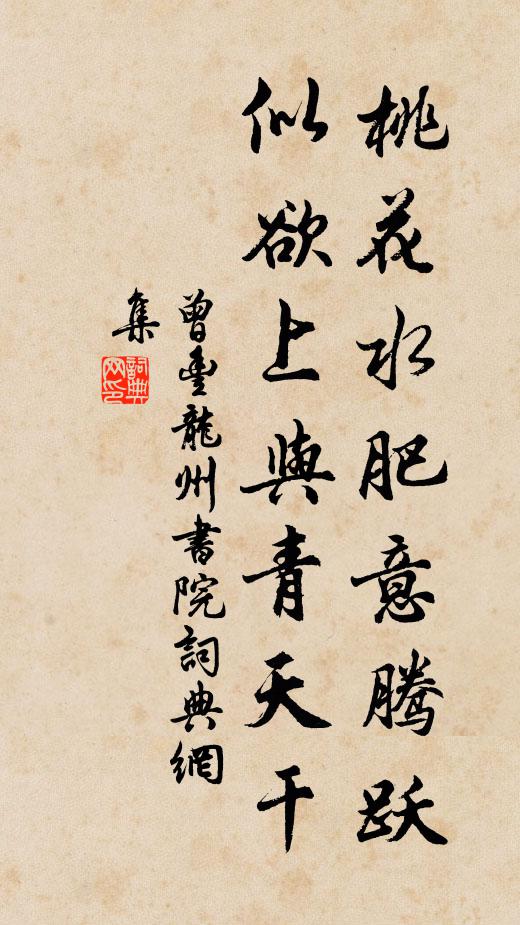 桃花水肥意腾跃
似欲上與青天干
曾豐龍州書院詞典網
集
詞典網印